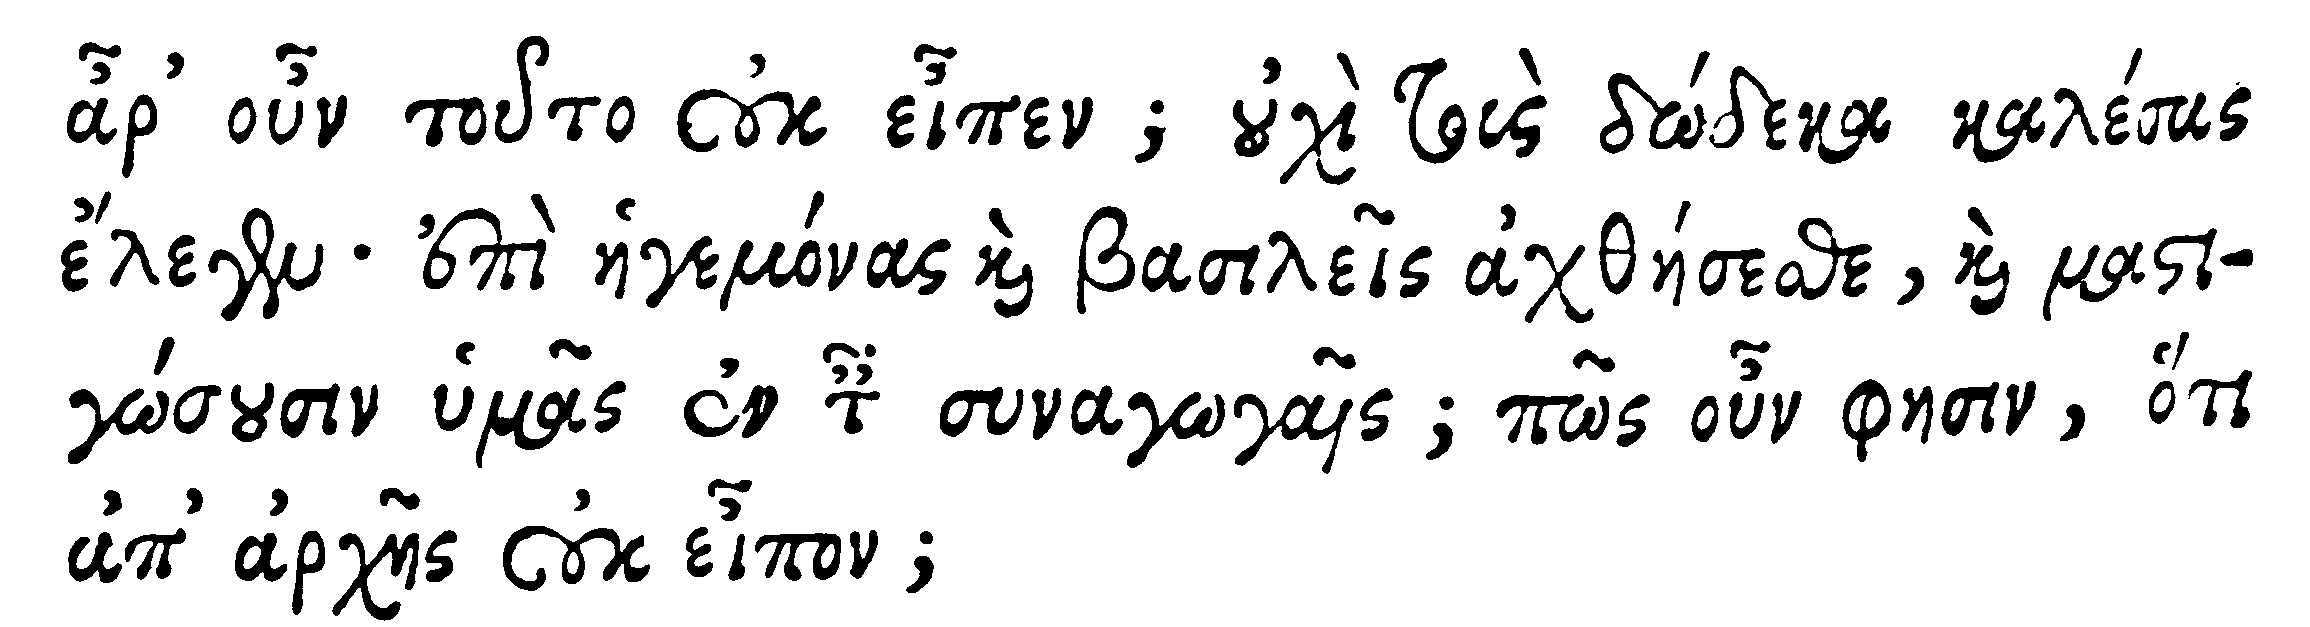 ἆρ’ οὖν τοῦτο οὐκ εἶπεν; οὐχὶ τοὺς δώδεκα καλέσας
ἔλεγεν· ἐπὶ ἡγεμόνας καὶ βασιλεῖς ἀχθήσεσθε, καὶ μαστι-
γώσουσιν ὑμᾶς ἐν ταῖς συναγωγαῖς; πῶς οὖν φησιν, ὅτι
ἀπ’ ἀρχῆς οὐκ εἶπον;